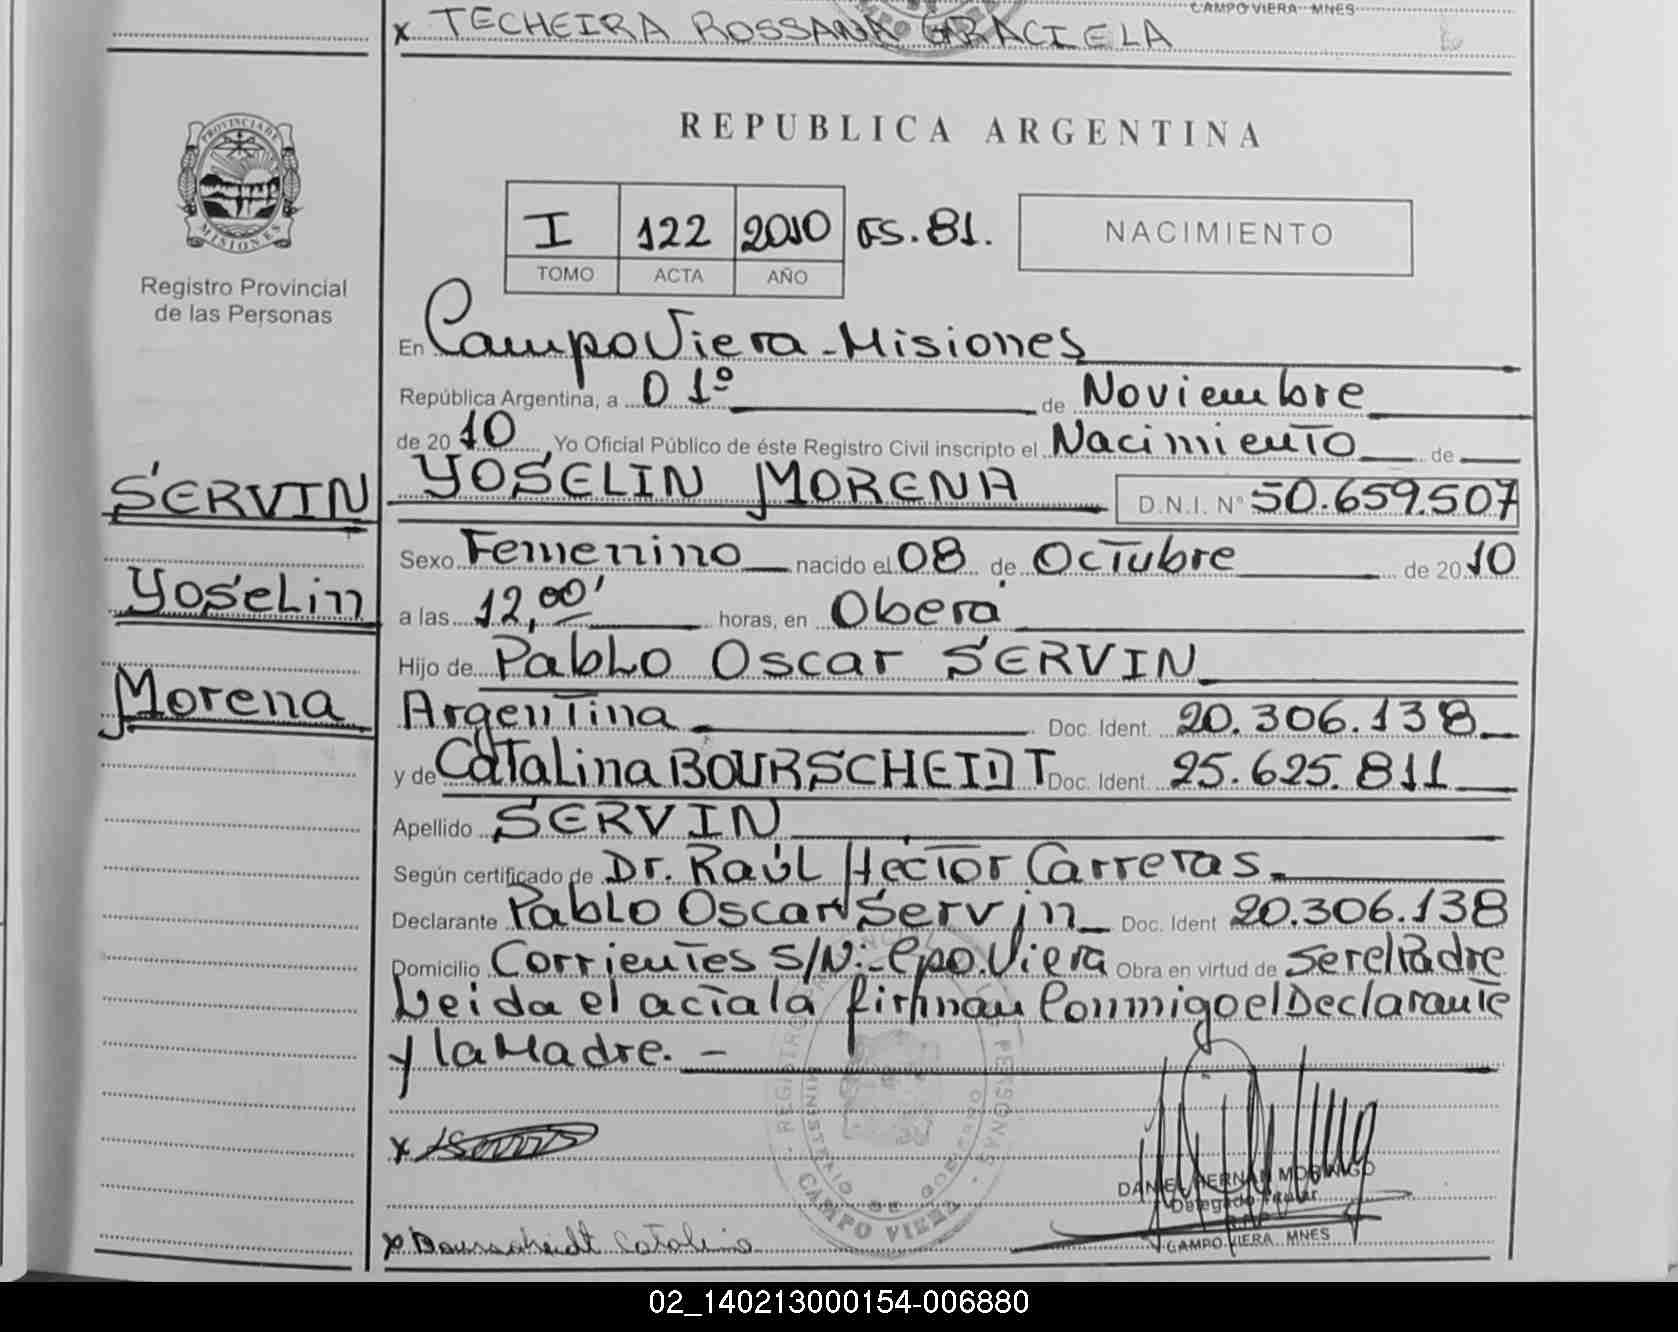 CAMPO VIERA MNES
x TECHEIRA ROSSANA GRACIELA
PROVINCIA DE
MISIONES
Registro Provincial
de las Personas
SERVIN
Yoselin
Morena
REPUBLICA ARGENTINA
I 122 2010 FS. 81.
TOMO ACTA AÑO
NACIMIENTO
En Campo Viera - Misiones
República Argentina, a 01º de Noviembre
de 2010 Yo Oficial Público de éste Registro Civil inscripto el Nacimiento de
YOSELIN MORENA D.N.I. Nº 50.659.507
Sexo Femenino nacido el 08 de Octubre de 2010
a las 12,00' horas, en Oberá
Hijo de Pablo Oscar SERVIN
Argentina Doc. Ident. 20.306.138
y de Catalina BOURSCHEIDT Doc. Ident. 25.625.811
Apellido SERVIN
Según certificado de Dr. Raúl Héctor Carreras.
Declarante Pablo Oscar Servin Doc. Ident 20.306.138
Domicilio Corrientes S/N:- Cpo. Viera Obra en virtud de ser el Padre
Leida el acta la firman Conmigo el Declarante
y la Madre. -
x
DANIEL HERNAN MORINIGO
Delegado Titular
CAMPO VIERA MNES
x Bourscheidt Catalina
REGISTRO PROVINCIAL DE LAS PERSONAS
MINISTERIO DE GOBIERNO
CAMPO VIERA
02_140213000154-006880